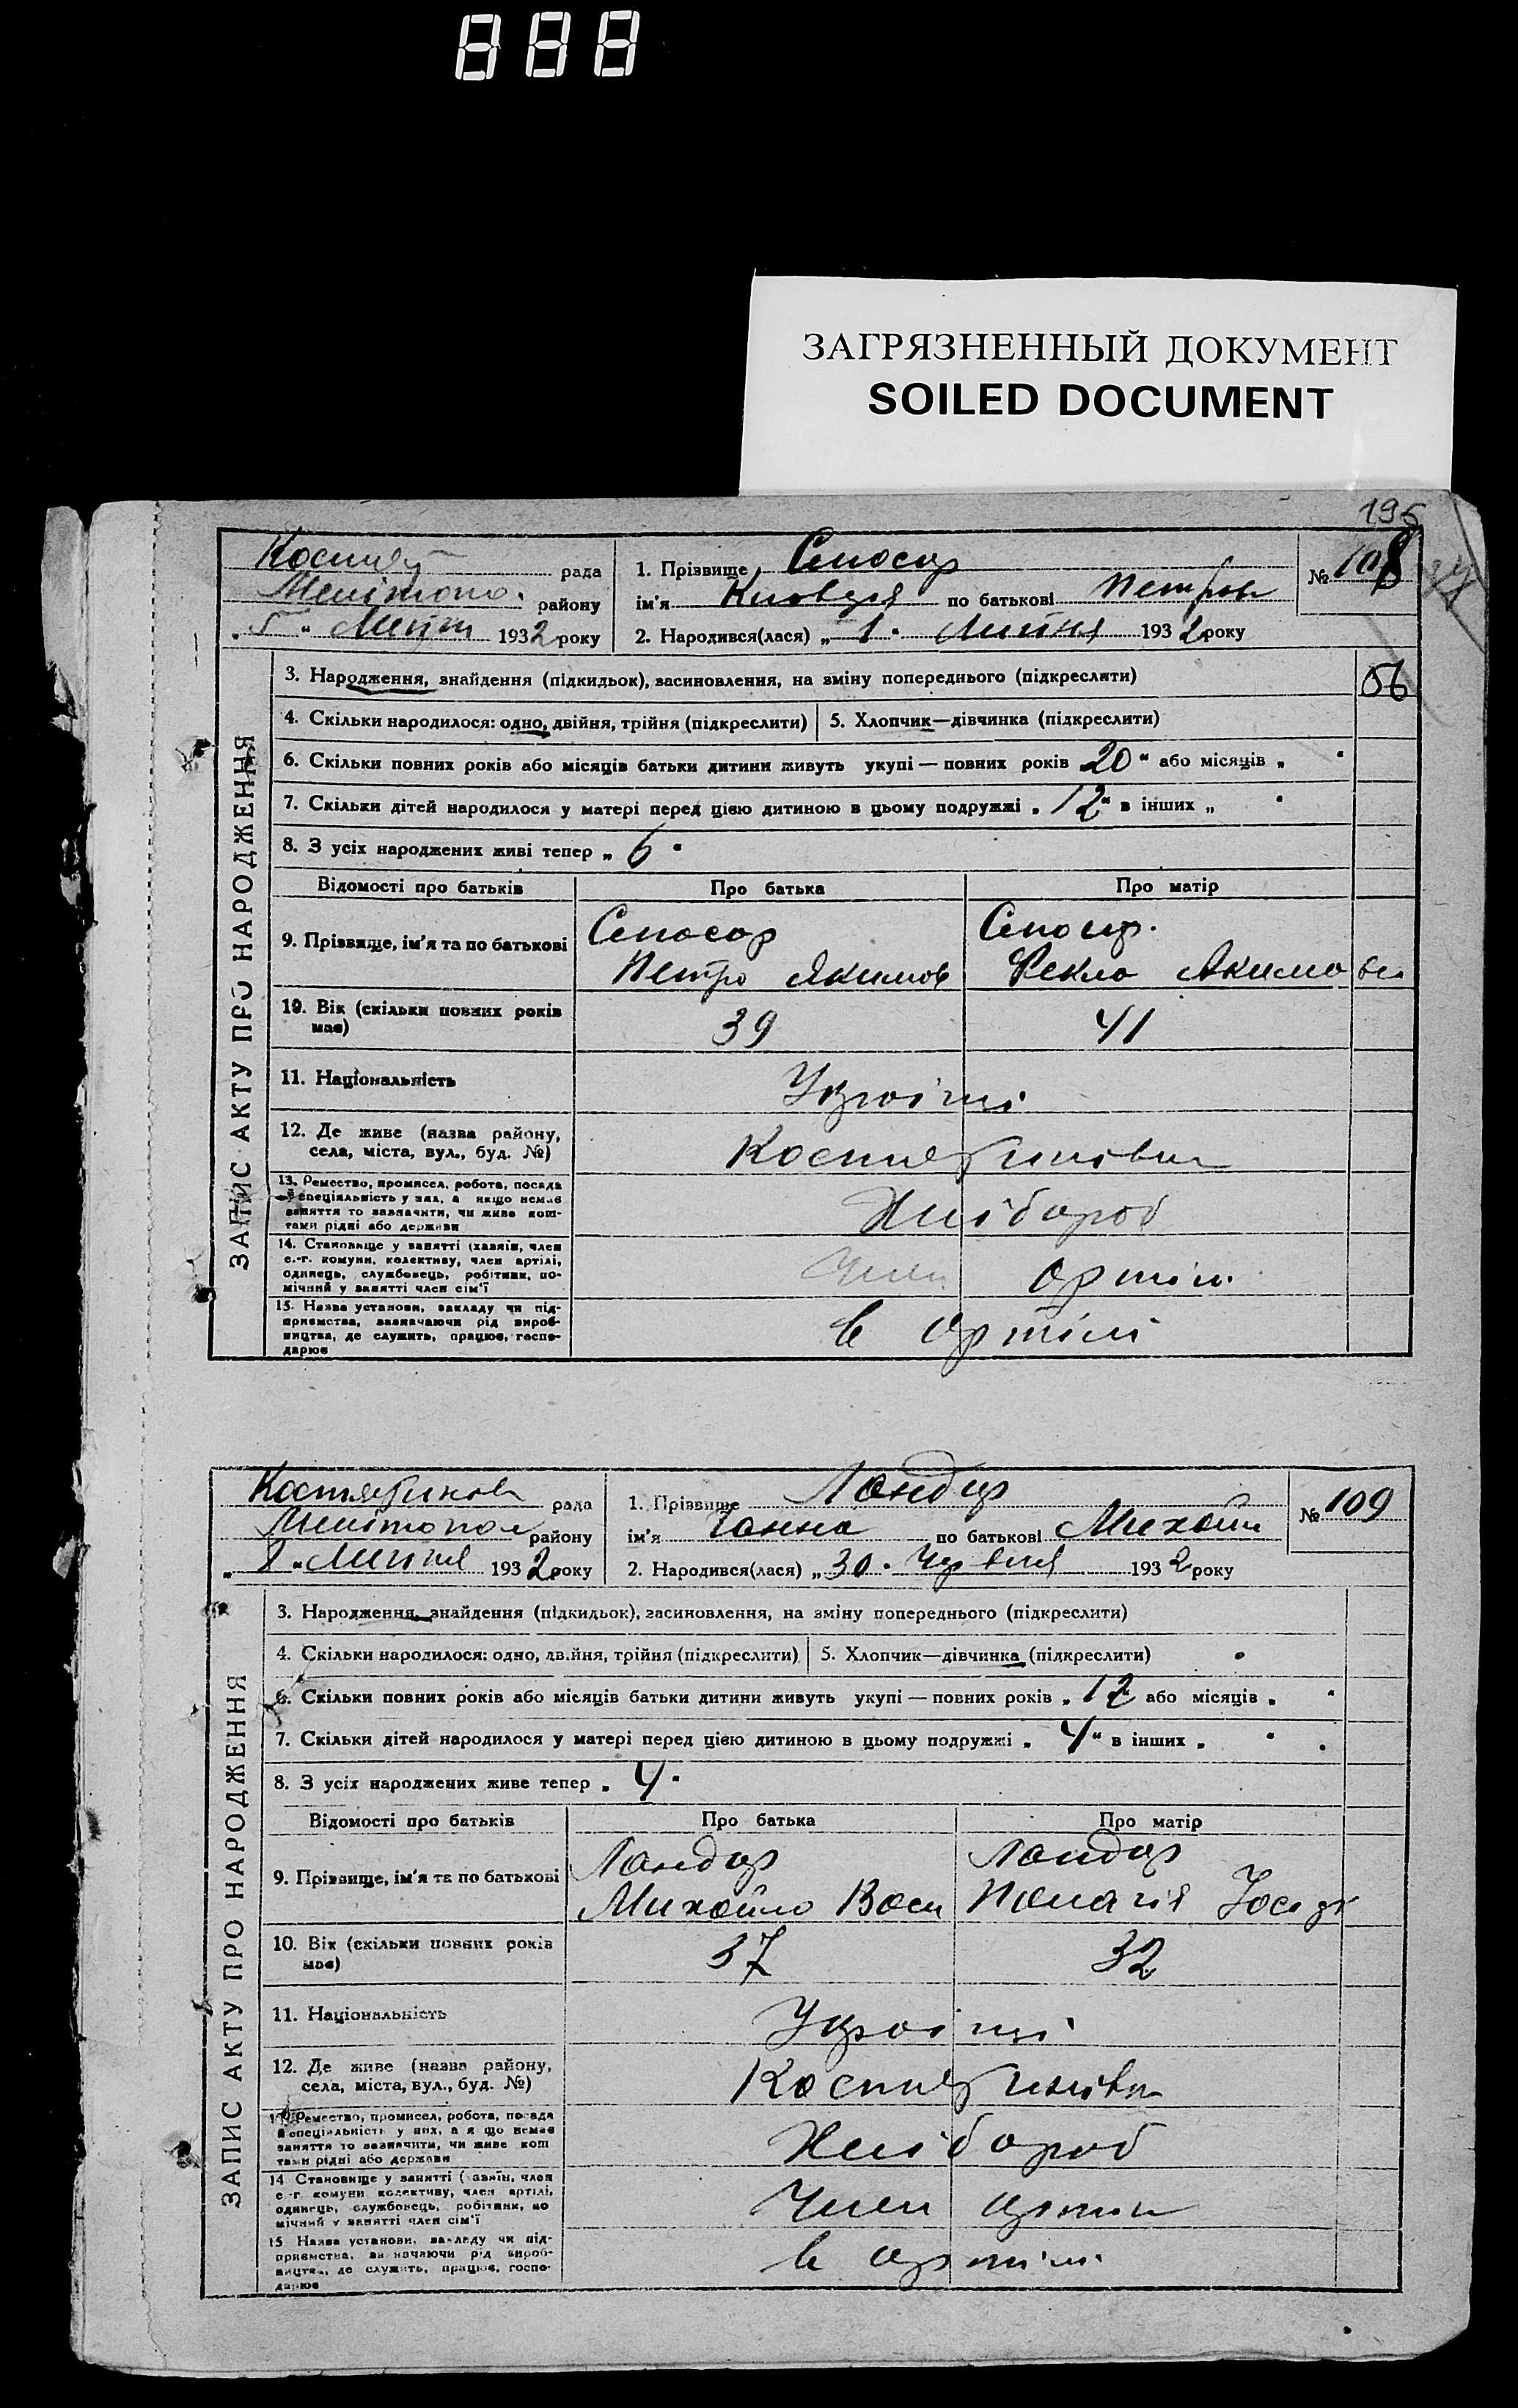 888
ЗАГРЯЗНЕННЫЙ ДОКУМЕНТ
SOILED DOCUMENT
195
рада
району
"5" 1932 року
1. Прізвище
ім'я по батькові Петров
№ 108
2. Народився(лася) „1" Липня 1932 року
ЗАПИС АКТУ ПРО НАРОДЖЕННЯ
3. Народження, знайдення (підкидьок), засиновлення, на зміну попереднього (підкреслити)
56
4. Скільки народилося: одно, двійня, трійня (підкреслити) 5. Хлопчик—дівчинка (підкреслити)
6. Скільки повних років або місяців батьки дитини живуть укупі — повних років 20" або місяців „ "
7. Скільки дітей народилося у матері перед цією дитиною в цьому подружжі „12" в інших „ "
8. З усіх народжених живі тепер „6"
Відомості про батьків Про батька Про матір
9. Прізвище, ім'я та по батькові
Петро Якимов Фекла Якимовна
10. Вік (скільки повних років має) 39 41
11. Національність Українці
12. Де живе (назва району,
села, міста, вул., буд. №)
13. Ремество, промисел, робота, посада
й спеціяльність у них, а якщо немає
заняття то зазначити, чи живе кош-
тами рідні або держави
Хлібороб
14. Становище у занятті (хазяїн, член
с.-г. комуни, колективу, член артілі,
одинець, службовець, робітник, по-
мічний у занятті член сім'ї
Член артіли
15. Назва установи, закладу чи під-
приємства, зазначаючи рід вироб-
ництва, де служить, працює, госпо-
дарює
в артілі
рада
Мелітопол району
„8" Липня 1932 року
1. Прізвище Лондар
ім'я Ганна по батькові Михайл
№ 109
2. Народився(лася) „30" Червня 1932 року
ЗАПИС АКТУ ПРО НАРОДЖЕННЯ
3. Народження, знайдення (підкидьок), засиновлення, на зміну попереднього (підкреслити)
4. Скільки народилося: одно, двійня, трійня (підкреслити) 5. Хлопчик—дівчинка (підкреслити)
6. Скільки повних років або місяців батьки дитини живуть укупі — повних років „12" або місяців „ "
7. Скільки дітей народилося у матері перед цією дитиною в цьому подружжі „4" в інших „ "
8. З усіх народжених живе тепер „4"
Відомості про батьків Про батька Про матір
9. Прізвище, ім'я та по батькові Лондар Лондар
Михайло Васи Палагія
10. Вік (скільки повних років має) 37 32
11. Національність Українці
12. Де живе (назва району,
села, міста, вул., буд. №)
13. Ремество, промисел, робота, посада
й спеціяльність у них, а якщо немає
заняття то зазначити, чи живе кош
тами рідні або держави
Хлібороб
14 Становище у занятті (хазяїн, член
с.-г. комуни колективу, член артілі,
одинець, службовець, робітник, по
мічний у занятті член сім'ї
Член артіли
15 Назва установи, закладу чи під-
приємства, зазначаючи рід вироб-
ництва, де служить, працює, госпо-
дарює
в артілі